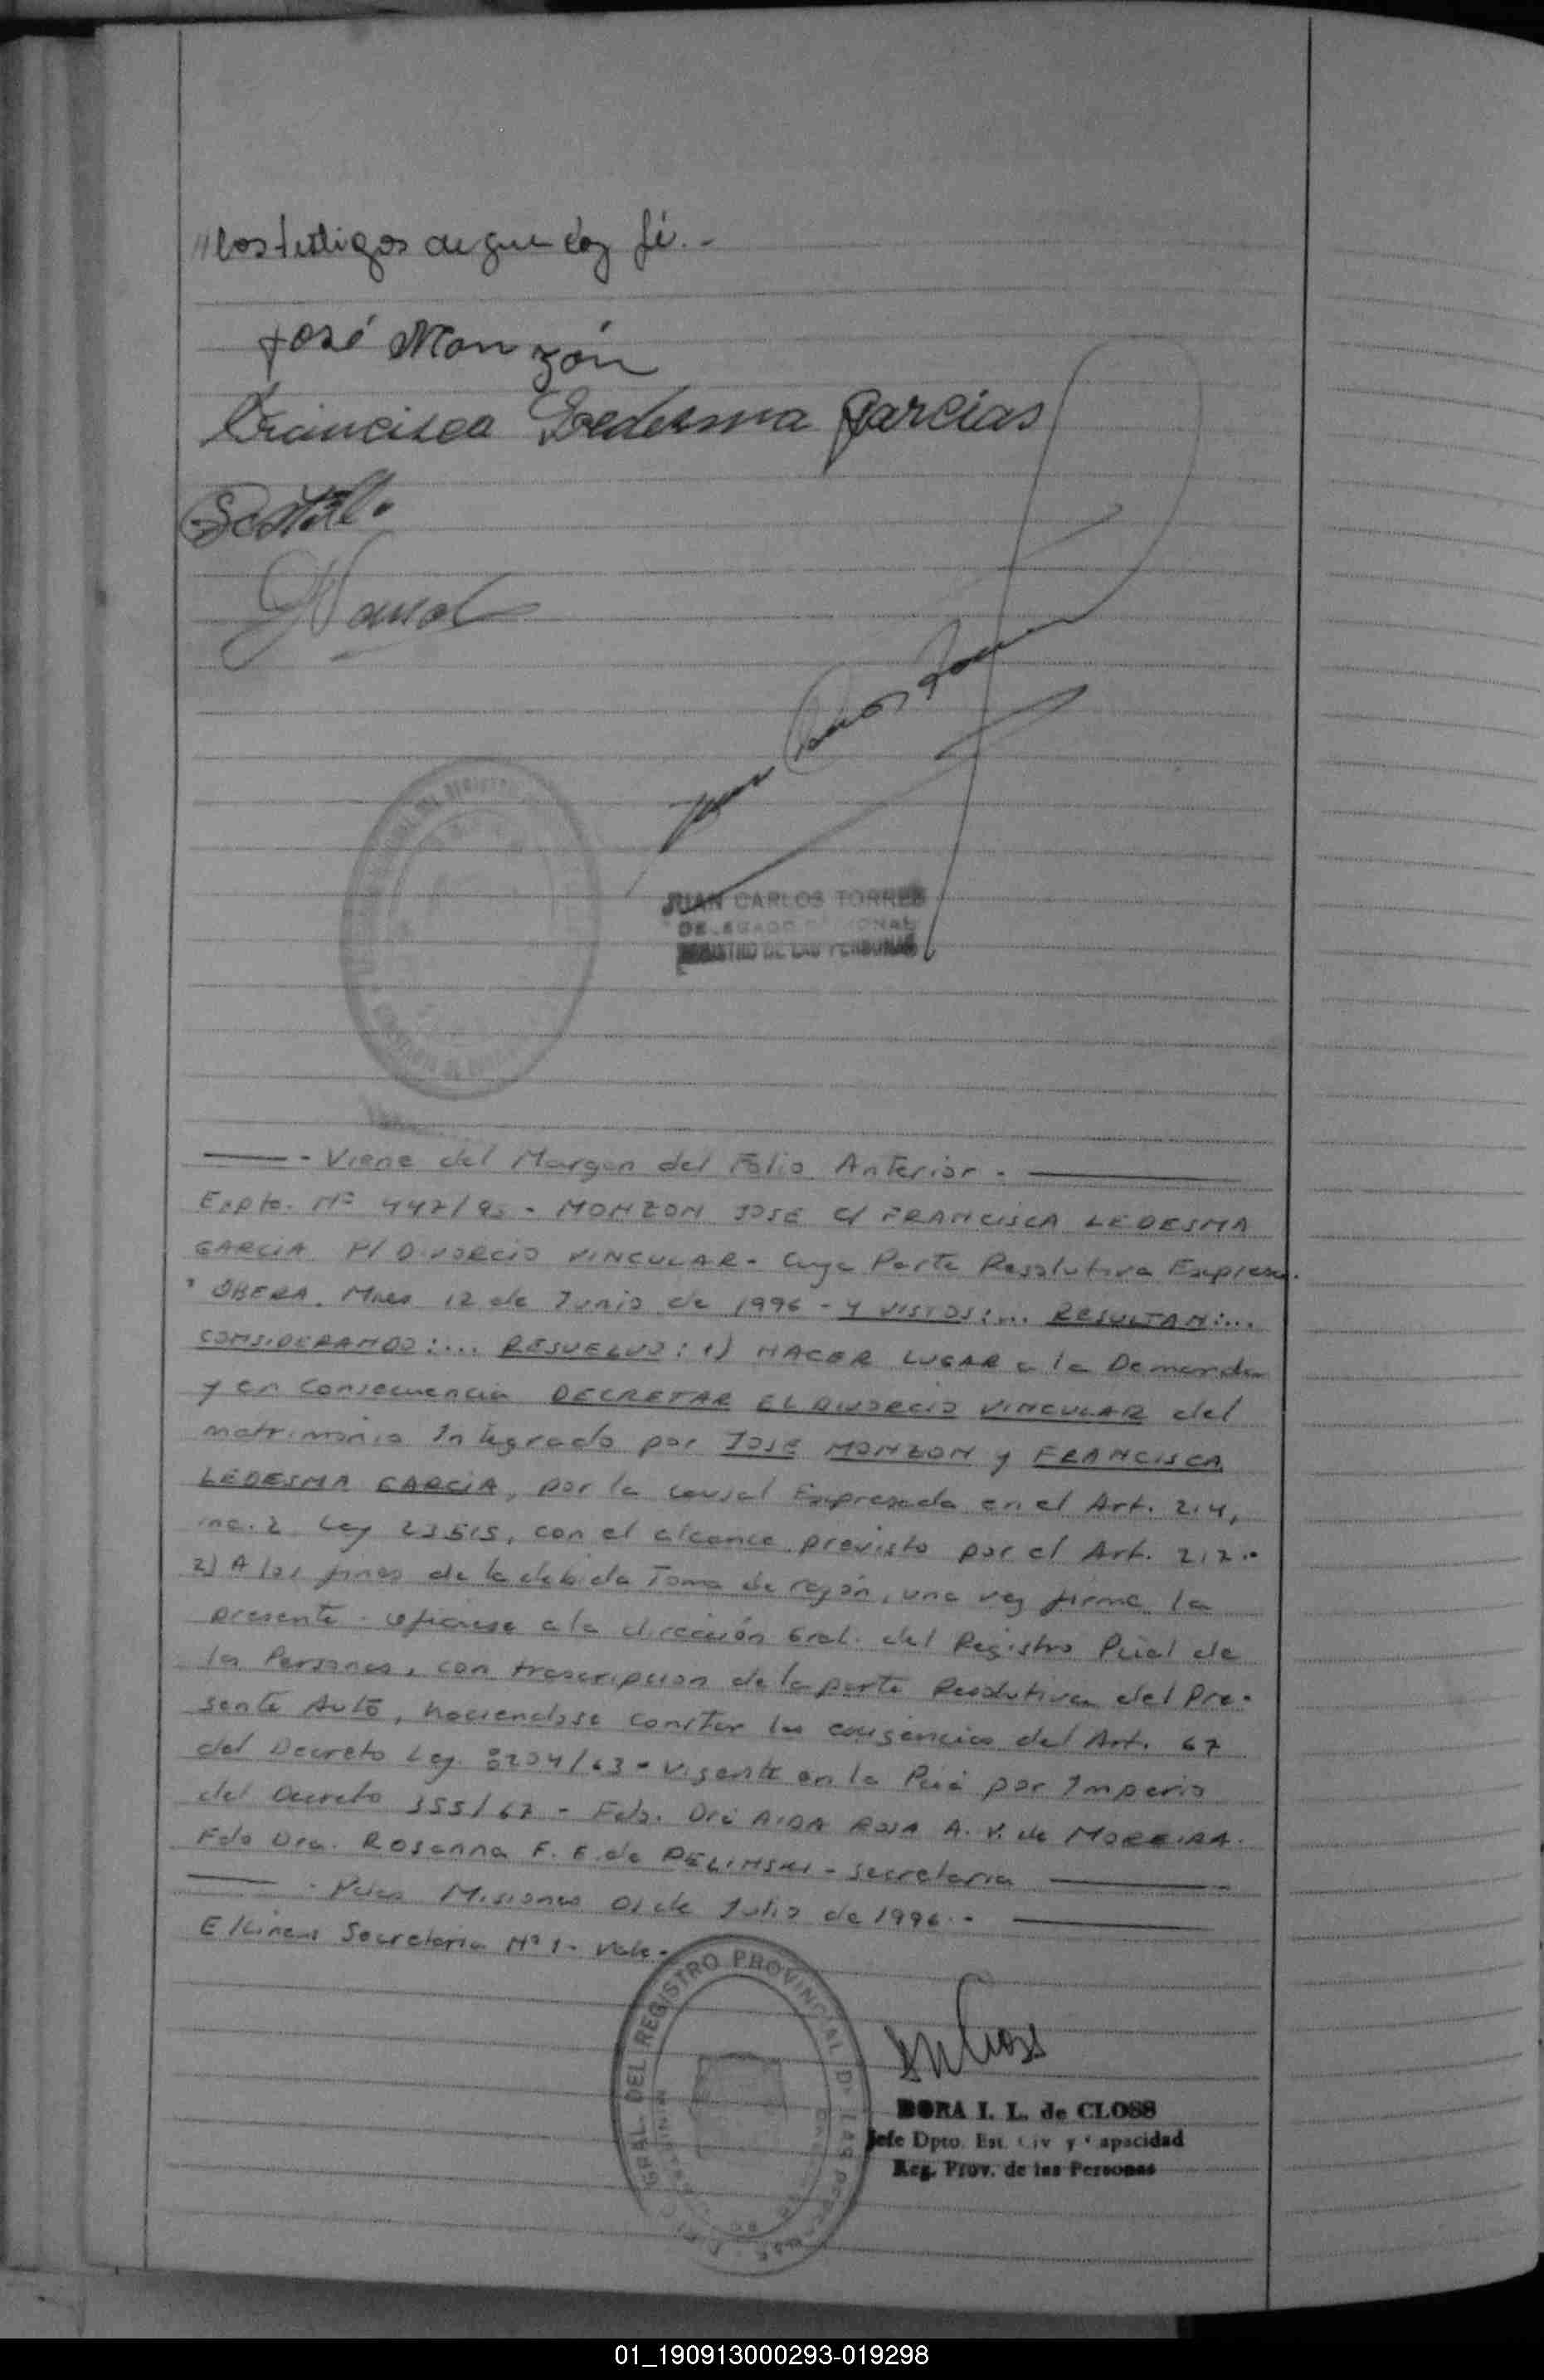 //los testigos de que doy fé.-
José Monzón
Francisca Ledesma Garcias
JUAN CARLOS TORRES
REGISTRO DE LAS PERSONAS
- Viene del Margen del Folio Anterior.-
Expte. Nº 447/95 - MONZON JOSE C/ FRANCISCA LEDESMA
GARCIA P/ DIVORCIO VINCULAR - Cuya Parte Resolutiva Expresa.
" OBERA. Mnes 12 de Junio de 1996 - Y VISTOS:... RESULTAN:...
CONSIDERANDO:... RESUELVO: 1) HACER LUGAR a la Demanda
y en consecuencia DECRETAR EL DIVORCIO VINCULAR del
matrimonio Integrado por JOSE MONZON y FRANCISCA
LEDESMA GARCIA, por la causal Expresada en el Art. 214,
inc. 2 Ley 23515, con el alcance previsto por el Art. 217.-
2) A los fines de la debida Toma de razón, una vez firme la
presente. ofíciese a la dirección Gral. del Registro Pcial de
las Personas, con trascripcion de la parte Resolutiva del Pre-
sente Auto, haciendose constar las exigencias del Art. 67
del Decreto Ley. 8204/63 - vigente en la Pcia por Imperio
del Decreto 355/67 - Fdo. Dra AIDA ROSA A. V. de MOREIRA.
Fdo Dra. Rosanna F. E. de PELINSKI - Secretaria
Misiones 01 de Julio de 1996.-
E/Lineas Secretaria Nº 1 - Vale.-
GRAL. DEL REGISTRO PROVINCIAL DE LAS PERSONAS
DORA I. L. de CLOSS
Jefe Dpto. Est. Civ y Capacidad
Reg. Prov. de las Personas
01_190913000293-019298